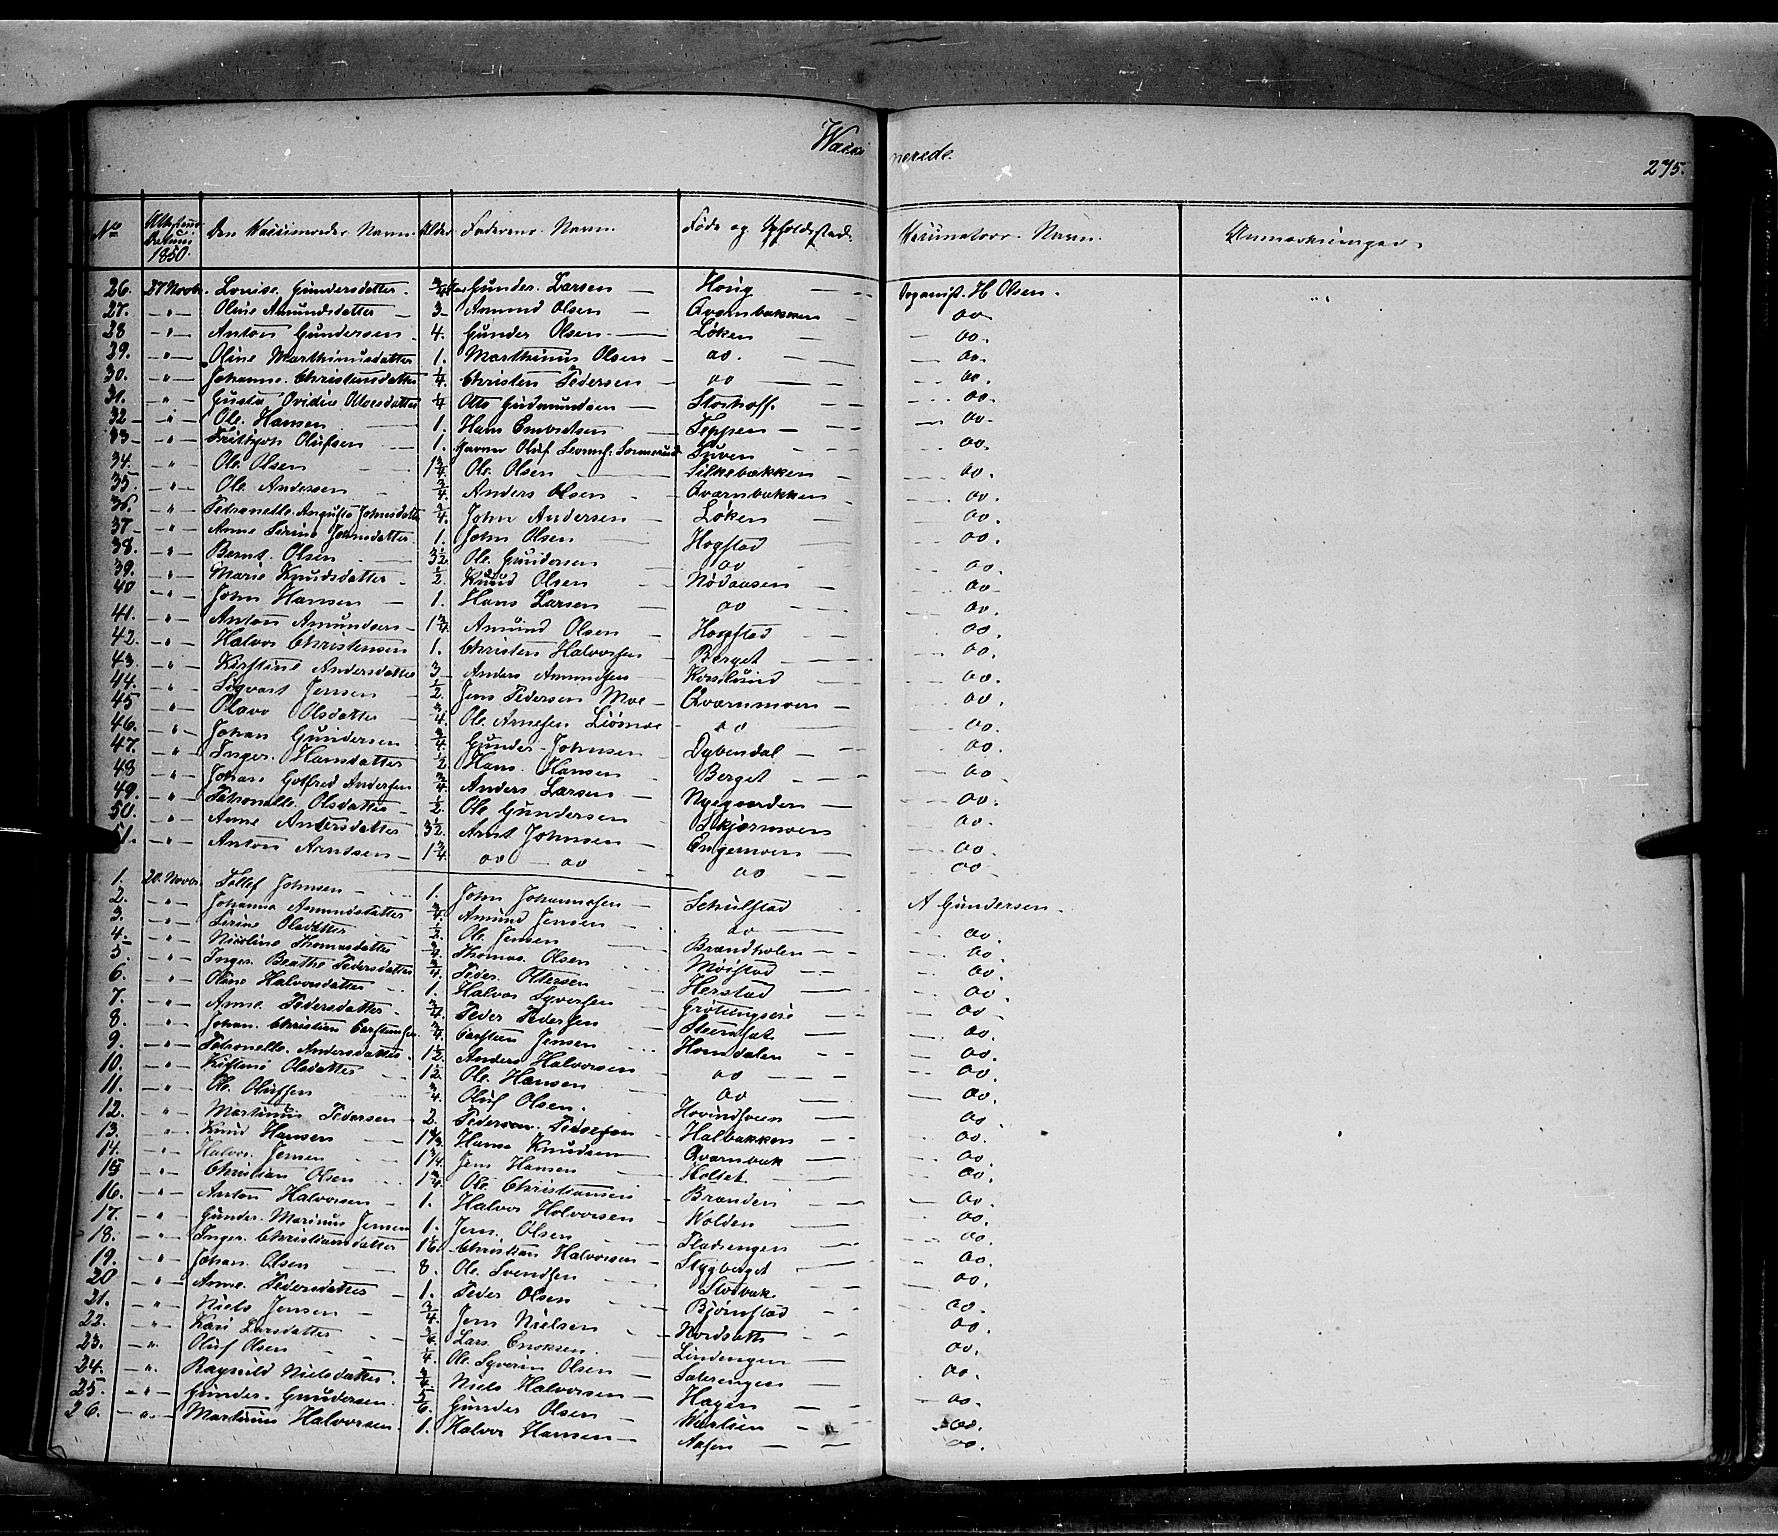 Waxinerede.
275.
No Attestens Datum 1850. Den Vaccineredes Navn. Alder Faderens Navn. Føde og Opholdssted. Vaccinateurs Navn. Anmærkninger.
26. 27 Novbr. Lovise Gundersdatter 3/4 Aar Gunder Larsen Horig Organist H Olsen.
27. " Oline Amundsdatter 3 Amund Olsen Qværnbakken do
28 " Anton Gundersen 4. Gunder Olsen Løken do.
29. " Oline Marthinusdatter 1. Marthinus Olsen do. do.
30. " Johanne Christensdatter 1/4 Christen Pedersen do do.
31. " Gusta Ovidia Ottersdatter 1/4 Otto Gudmundsen Storhoff. do.
32 " Ole Hansen 1. Hans Teppen do.
33 " Frithjoh Olufsen 1. Oluf do.
34. " Ole Olsen 1 3/4 Ole Olsen Silkebækken do.
35. " Ole Andersen 3/4 Anders Olsen Qværnbakken do.
36. " Petronelle Augusta Johnsdatter 3/4 John Andersen Løken do.
37 " Anne Serine Johnsdatter 1. John Olsen Hogstad do.
38. " Bernt Olsen 3 1/2 Ole Gundersen do do.
39. " Marie Knudsdatter 1/2 Knud Olsen Nødaasen do.
40 " John Hansen 1. Hans Larsen do do.
41. " Anton Amundsen 1 3/4 Amund Olsen Hogstad do.
42. " Halvor Christensen 1. Christen Halvorsen Berget do.
43. " Kirstine Andersdatter 3 Anders Amundsen Korslund do.
44. " Sigvart Jensen 1/2 Jens Pedersen Moe Qværnmoen do.
45 " Olava Olsdatter 3/4 Ole Arnesen do do.
46. " Johan Gundersen 3/4 Gunder Johnsen Dybendal do.
47. " Inger Hansdatter 1/2 Hans Hansen Berget do.
48 " Johan Gotfred Andersen 3/4 Anders Larsen Nyegaarden do.
49. " Petronelle Olsdatter 1/2 Ole Gundersen Skjærmoen do.
50. " Anne Antersdatter 3 1/2 Arnt Johnsen Engemoen do.
51. " Anton Arntsen 1 3/4 do do do do
1. 20. Novbr. Tollef Johnsen 1. John Johannesen Schulstad A Gundersen.
2. " Johanna Amundsdatter 3/4 Amund Jensen do do.
3. " Serine Olsdatter 1/2 Ole Jensen Brændholen do.
4. " Nicoline Thomasdatter 3/4 Thomas Olsen Moistad do.
5. " Inger Beathe Pedersdatter 3/4 Peder Ottersen Herstad do.
6. " Oline Halvorsdatter 1. Halvor Syversen Grøtungseie do.
7. " Anne Pedersdatter 3/4 Peder Pedersen Steinset do.
8. " Johan Christian Carstensen 3/4 Carsten Jensen Homdalen do.
9. " Petronelle Andersdatter 1 1/2 Anders Halvorsen do do.
10. " Kistine Olsdatter 1 1/2 Ole Hansen do do.
11. " Ole Olufsen 3/4 Oluf Olsen. Hovindsveen do.
12. " Martinus Pedersen 2. Pederson Pedersen Halbakken do.
13. " Knud Hansen Hans Knudsen Qværnbæk do.
14. " Halvor Jensen 1 1/4 Jens Hansen Holtet do.
15 " Christian Olsen 1 3/4 Ole Christiansen Branden do.
16. " Anton Halvorsen 1. Halvor Holvorsen Wolden do.
17. " Gunder Marinus Jensen 1. Jens Olsen Pladsengen do.
18. " Inger Christiansdatter 1 1/6 Christian Halvorsen Stygberget do.
19. " Johan Olsen 8. Ole Svendsen do.
20 " Anne Pedersdatter 1. Peder Olsen Bjørnstad do.
21. " Niels Jensen 3/4 Jens Nielsen Nordsæth do.
22. " Kari Larsdatter 3/4 Lars Enoksen. Lindengen do.
23. " Oluf Olsen 1/4 Ole Syverin Olsen Sæterengen do.
24. " Ragnild Nielsdatter. 3/4 Niels Halvorsen Hagen do.
25. " Gunder Gundersen. 5/6. Gunder Olsen Wæstien do.
26. " Martinus Halvorsen. 1. Halvor Hansen Aasen do.